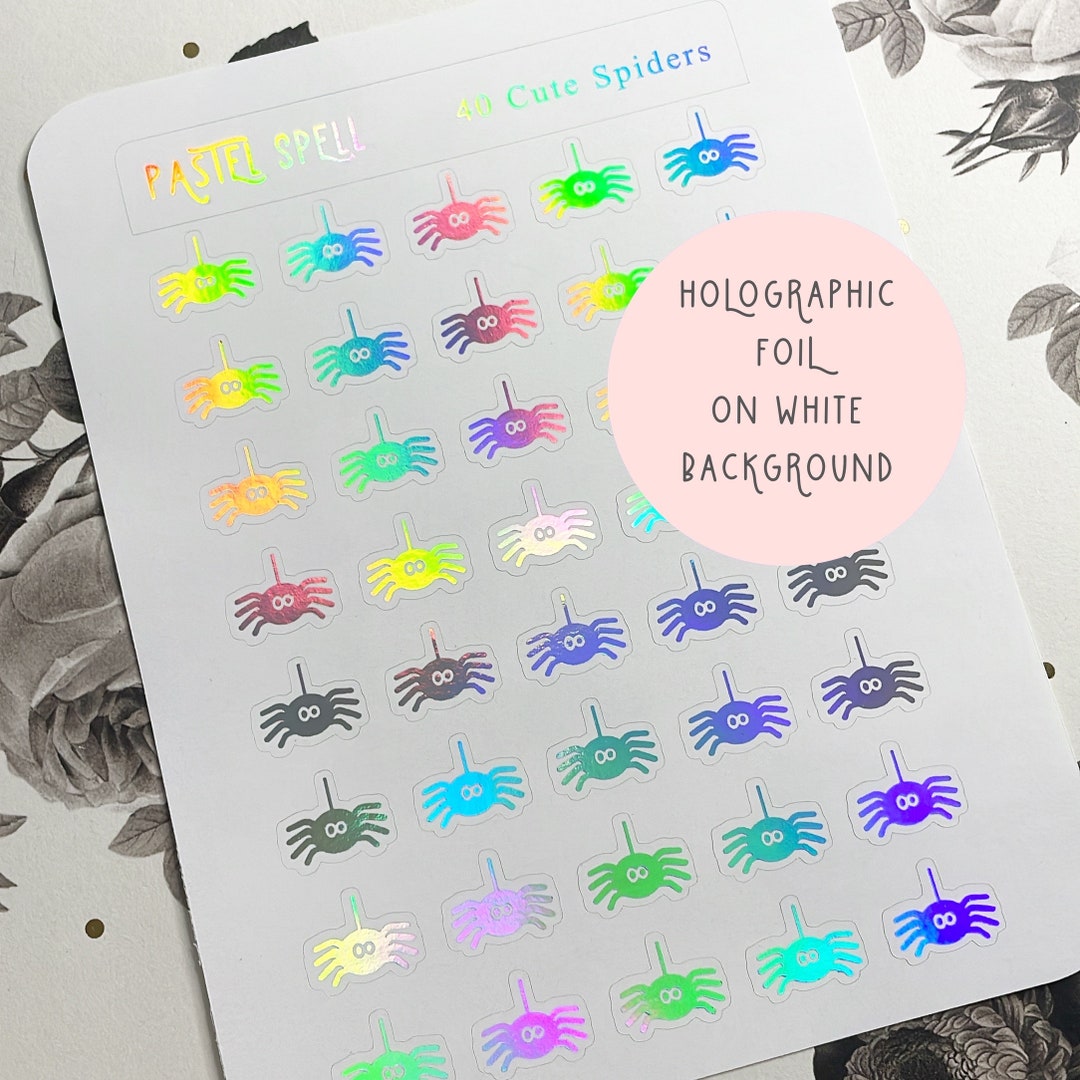 PASTEL SPELL
40 Cute Spiders
HOLOGRAPHIC
FOIL
ON WHITE
BACKGROUND